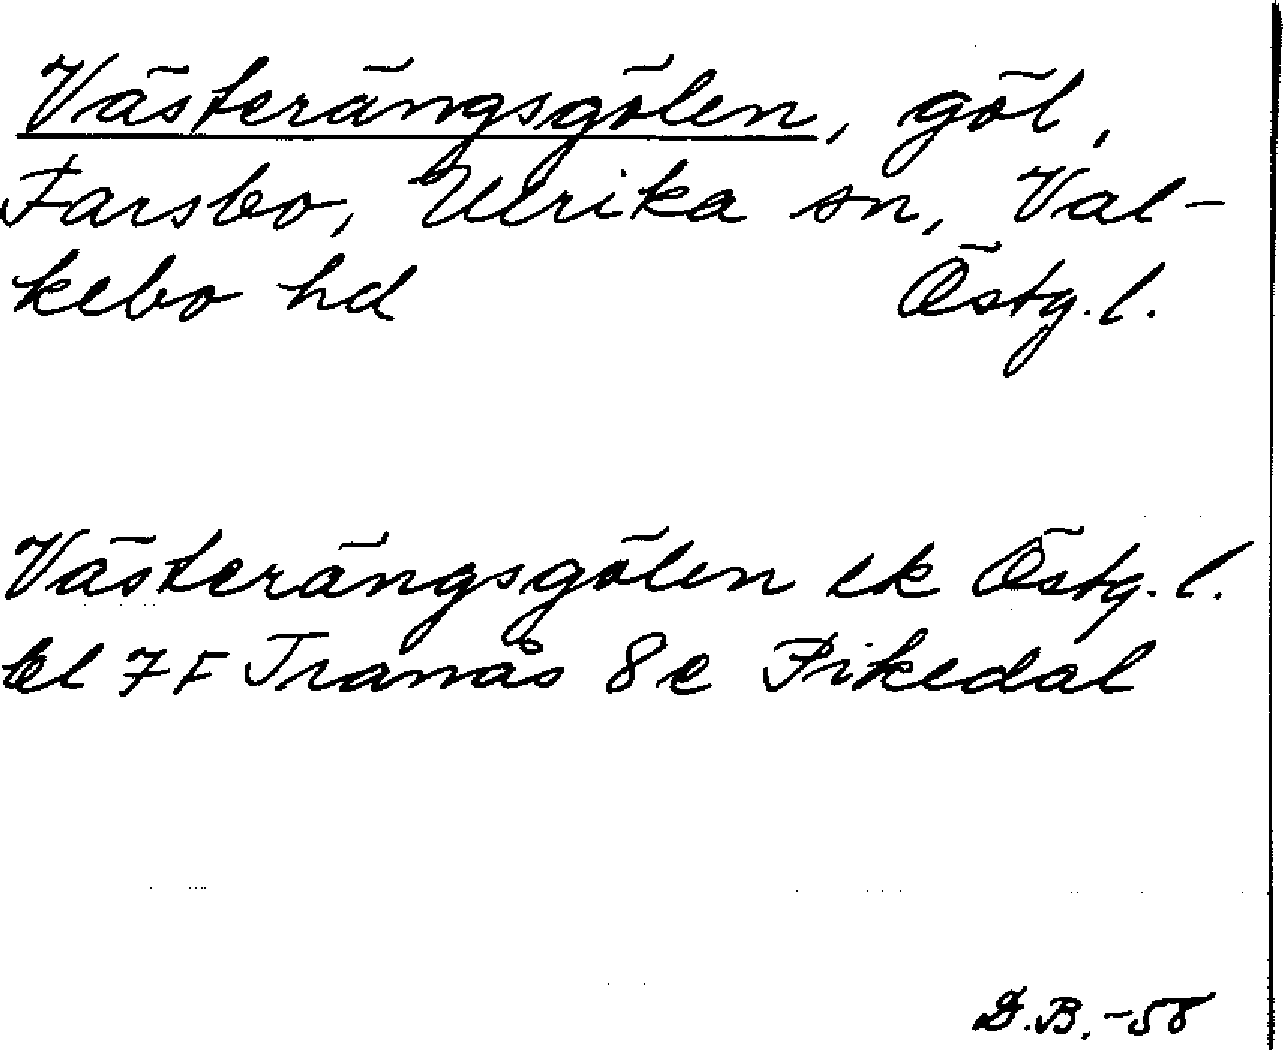 Västerängsgölen, göl,
Farsbo, Ulrika sn, Val-
kebo hd Östg.l.
Västerängsgölen ek Östg.l.
bl 7F Tranås 8e Pikedal
D.B.-58